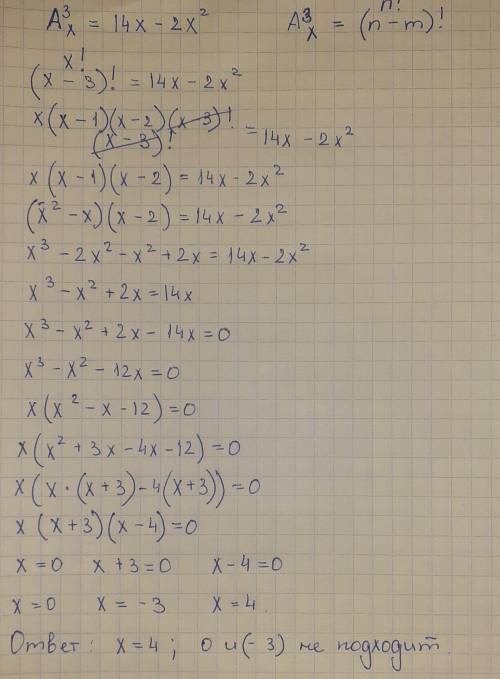 A³ₓ = 14x - 2x²    A³ₓ = n!/(n-m)!
x!/(x-3)! = 14x - 2x²
x(x-1)(x-2)(x-3)!/(x-3)! = 14x - 2x²
x(x-1)(x-2) = 14x - 2x²
(x² - x)(x-2) = 14x - 2x²
x³ - 2x² - x² + 2x = 14x - 2x²
x³ - x² + 2x = 14x
x³ - x² + 2x - 14x = 0
x³ - x² - 12x = 0
x(x² - x - 12) = 0
x(x² + 3x - 4x - 12) = 0
x(x·(x+3) - 4(x+3)) = 0
x(x+3)(x-4) = 0
x = 0    x + 3 = 0    x - 4 = 0
x = 0    x = -3    x = 4
Ответ: x = 4; 0 и (-3) не подходит.